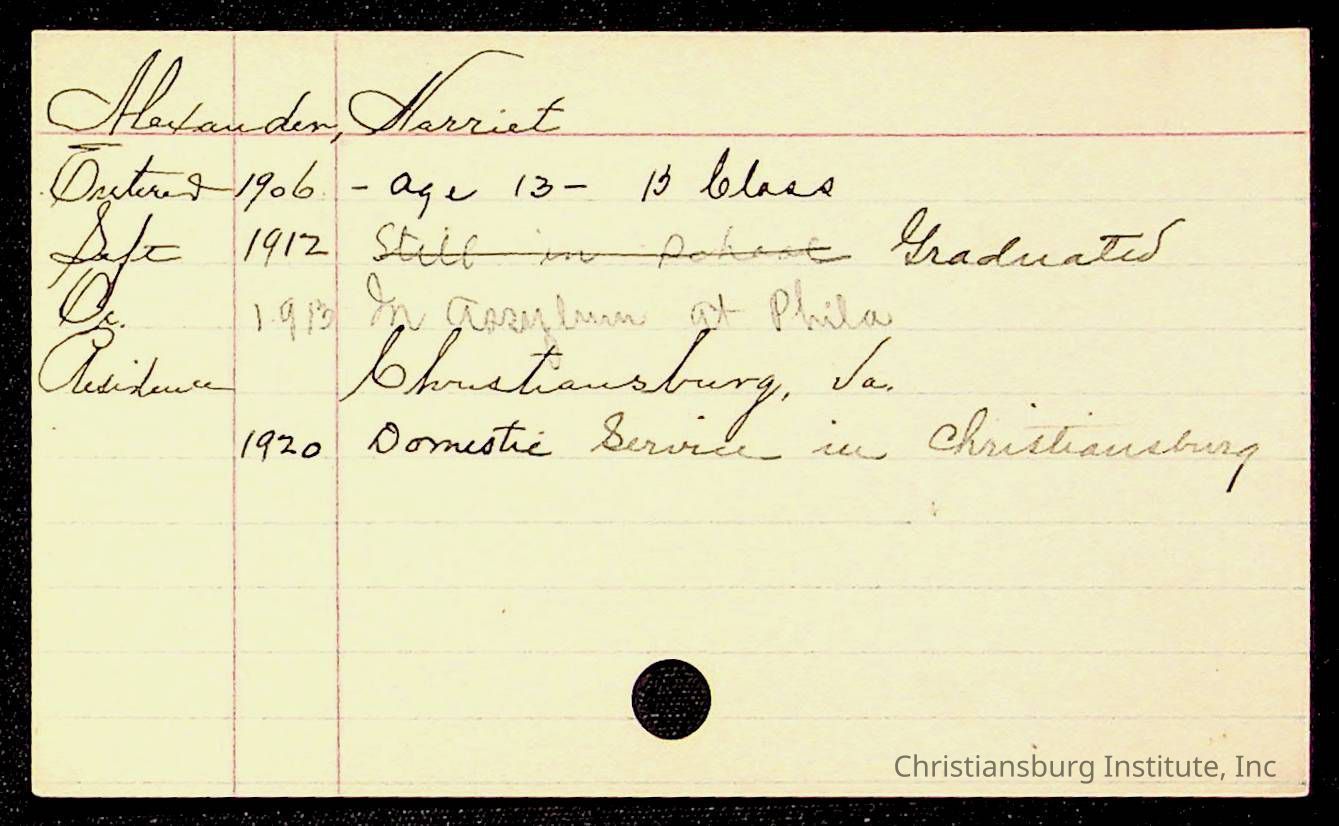 Alexander, Harriet
Entered 1906 - age 13 - B Class
Left 1912 Still in school Graduated
Oc. 1913 In Assylum at Phila
Residence Christiansburg, Va.
1920 Domestic Service in Christiansburg
Christiansburg Institute, Inc